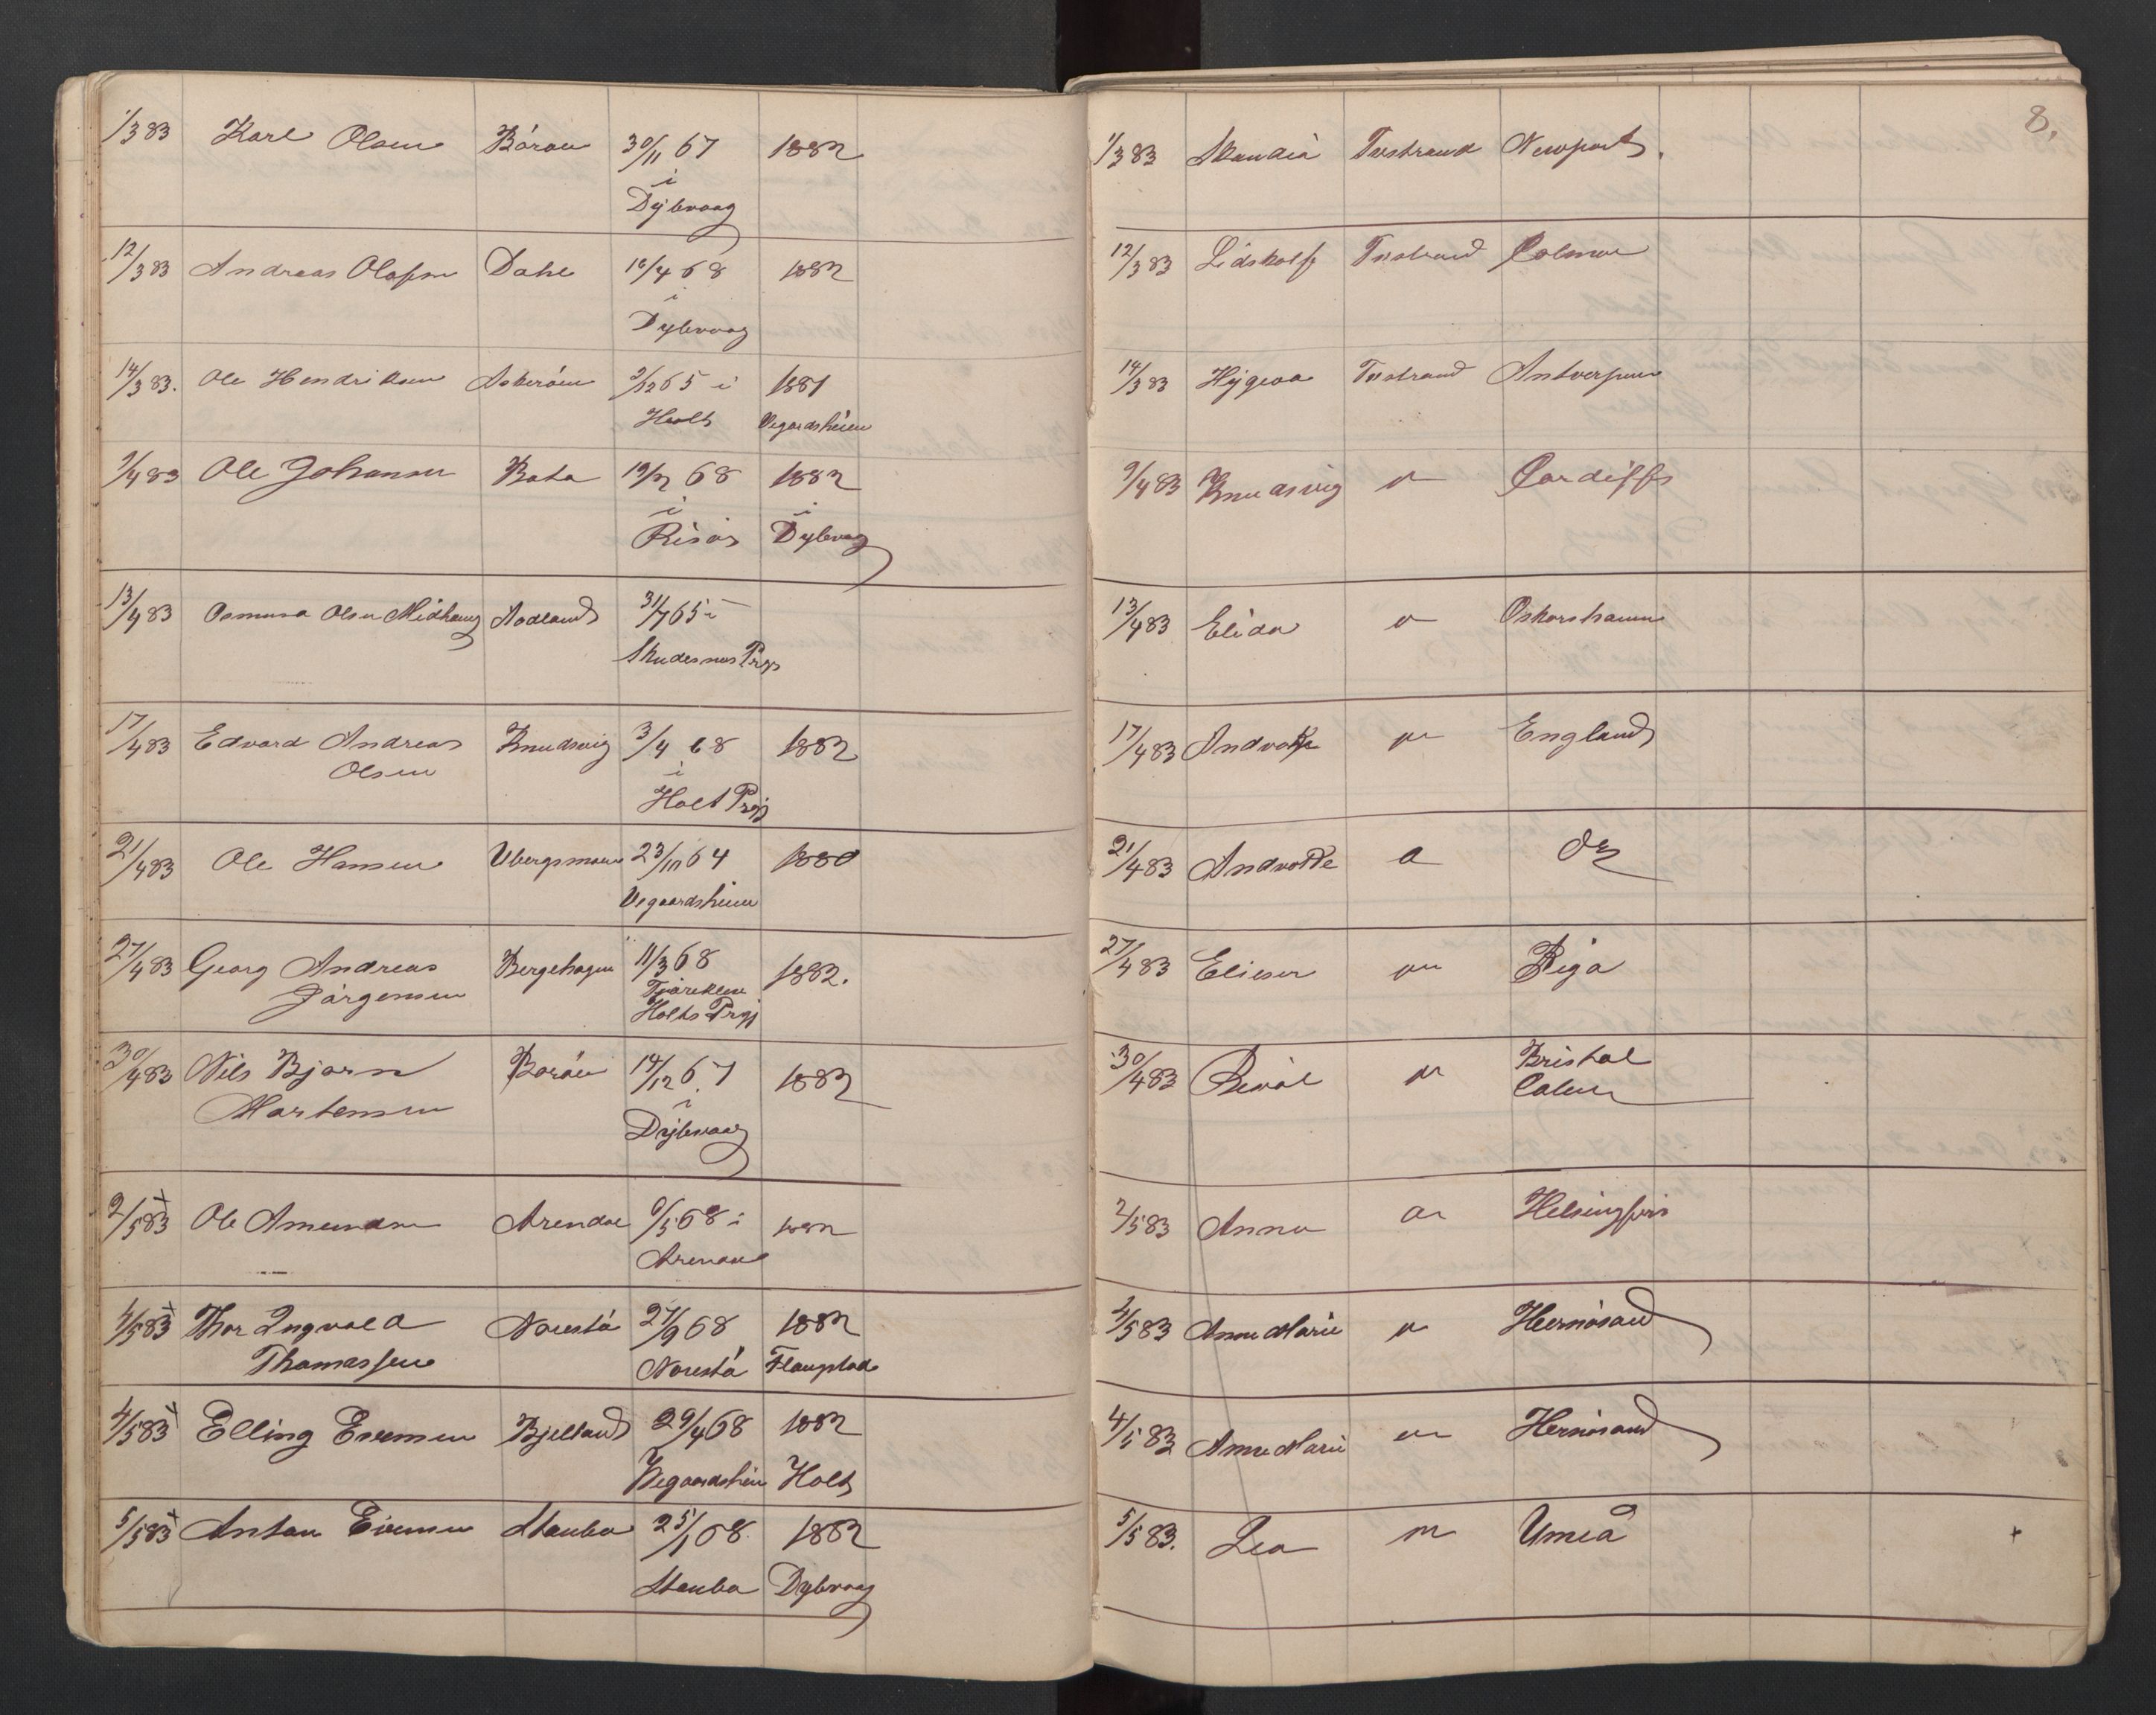 8.
1/3 83 Karl Olsen Börøen 30/11 67 1882
i
Dybvaag
12/3 83 Andreas Olafsen Dahl 10/4 68 1882
i
Dybvaag
14/3 83. Ole Hendriksen Askerøen 9/12 65 i 1881
Holt Vegardsheien
9/4 83 Ole Johansen Bota 19/2 68 1882
i i
Risør Dybvaag
13/4 83 Olsen Midhaug Aadland 31/7 65 i
Skudesnes Prgj
17/4 83 Edvard Andreas Knudsvig 3/4 68 1882
Olsen i
Holt Prgj
21/4 83 Ole Hansen Ubergsmoen 23/10 64 1880
Vegaardsheien
27/4 83 Georg Andreas Bergehagen 11/3 68 1882.
Jørgensen
Holts Prgj
30/4 83 Nils Bjørn Borøen 14/12 67 1882
Martensen i
Dybvaag
2/5 83 Ole Amundsen Arendal 6/5 68 i 1882
Arendal
4/5 83 Thor Ingvald Narestö 27/9 68 1882
Thomassen Narestö Flaugstad
4/5 83 Elling Evensen Bjelland 29/4 68 1882
Wegaardsheien Holt
5/5 83 Anton Eversen Stauba 25/1 68 1882
Stauba Dybvaag
1/3 83 Skandia Tvestrand Newport.
12/3 83 Lidskalf Tvestrand Colmar
14/3 83 Hygeaa Tvestrand Antverpen
9/4 83 Knudsvig " Cardiff
13/4 83 Elida " Oskarshamn
17/4 83 Andvake " England
21/4 83 Andvake " do
27/4 83 Elieser " Riga
30/4 83 " Bristol
2/5 83 Anna " Helsingfors
4/5 83 Anne Marie " Hernösand
4/5 83 Anne Marie " Hernösand
5/5 83. Lea " Umeå +